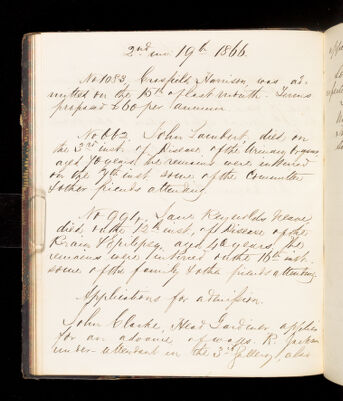 2nd mo 19th 1866.
No 1083, Crosfield Harrison, was ad-
mitted on the 15th of last month. Terms
proposed £60 per annum.
No 662. John Lambert, died on
the 3rd inst. of Disease of the Urinary Organs
aged 70 years, his remains were interred
on the 7th inst. some of the Committee
& other friends attending
No 994, Jane Reynolds Neave,
died on the 12th inst, of Disease of the
Brain & Epilepsy, aged years, the
remains were interred on the 16th inst.
some of the family & other friends attending.
Applications for admission.
John Clarke, Head Gardener applies
for an advance of wages. R. Jackson
under-attendant in the 3rd Gallery, also